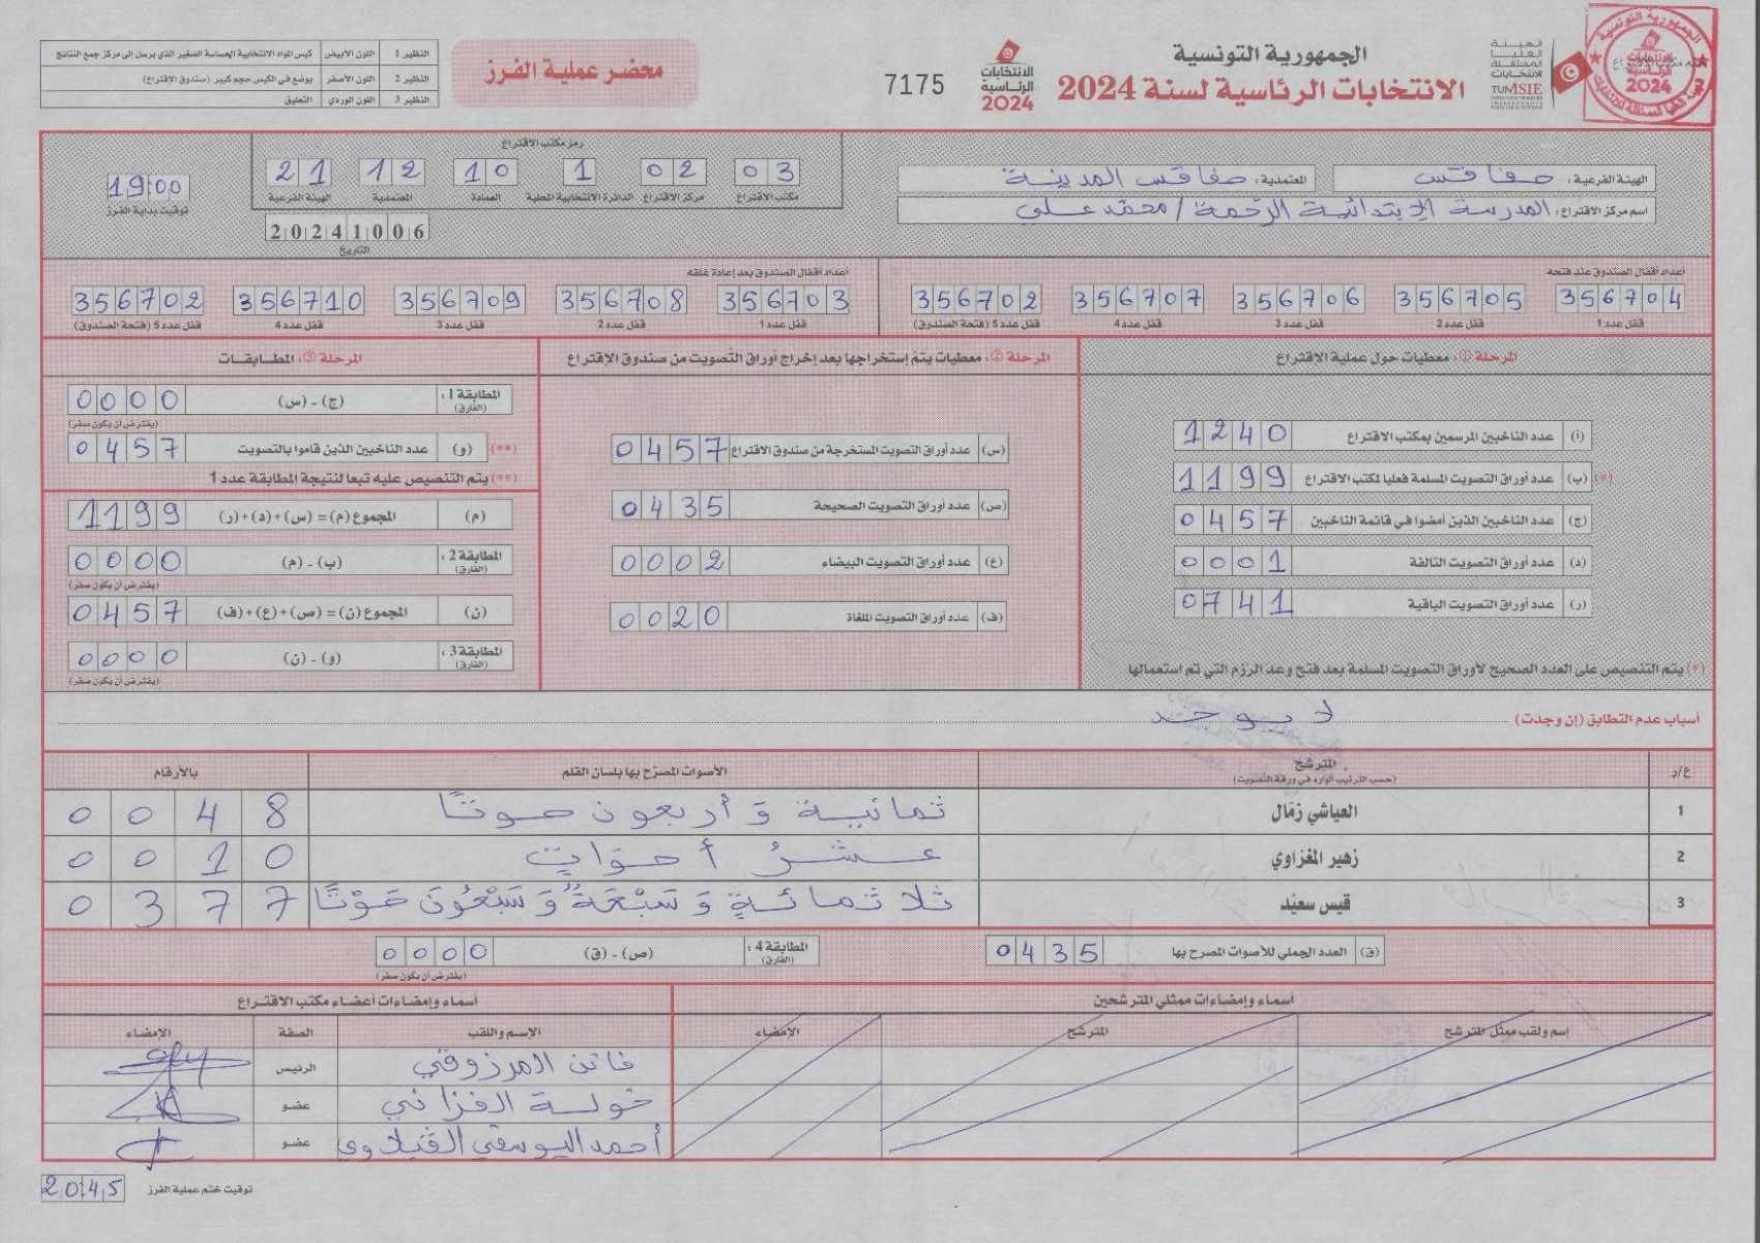 الجمهورية التونسية
الانتخابات الرئاسية لسنة 2024
الهيئة العليا المستقلة للانتخابات
TUNISIE
الانتخابات الرئاسية 2024
7175
محضر عملية الفرز
النظير 1 اللون الأبيض كيس المواد الانتخابية الحساسة الصغير الذي يرسل الى مركز جمع النتائج
النظير 2 اللون الأصفر يوضع في الكيس حجم كبير (صندوق الاقتراع)
النظير 3 اللون الوردي التعليق
الهيئة الفرعية: صفاقس المعتمدية: صفاقس المدينة
اسم مركز الاقتراع: المدرسة الإبتدائية الرحمة / محمد علي
رمز مكتب الاقتراع
03 مكتب الاقتراع
02 مركز الاقتراع
1 الدائرة الانتخابية المحلية
10 العمادة
12 المعتمدية
21 الهيئة الفرعية
20241006
التاريخ
19:00
توقيت بداية الفرز
أعداد أقفال الصندوق عند فتحه
356704 356705 356706 356707 356702
قفل عدد 1 قفل عدد 2 قفل عدد 3 قفل عدد 4 قفل عدد 5 (فتحة الصندوق)
أعداد أقفال الصندوق بعد إعادة غلقه
356703 356708 356709 356710 356702
قفل عدد 1 قفل عدد 2 قفل عدد 3 قفل عدد 4 قفل عدد 5 (فتحة الصندوق)
المرحلة ①: معطيات حول عملية الاقتراع
(أ) عدد الناخبين المرسمين بمكتب الاقتراع 1240
(*) (ب) عدد أوراق التصويت المسلمة فعليا لمكتب الاقتراع 1199
(ج) عدد الناخبين الذين أمضوا في قائمة الناخبين 0457
(د) عدد أوراق التصويت التالفة 0001
(ر) عدد أوراق التصويت الباقية 0741
(*) يتم التنصيص على العدد الصحيح لأوراق التصويت المسلمة بعد فتح وعد الرزم التي تم استعمالها
المرحلة ②: معطيات يتم إستخراجها بعد إخراج أوراق التصويت من صندوق الاقتراع
(س) عدد أوراق التصويت المستخرجة من صندوق الاقتراع 0457
(ص) عدد أوراق التصويت الصحيحة 0435
(ع) عدد أوراق التصويت البيضاء 0002
(ف) عدد أوراق التصويت الملغاة 0020
المرحلة ③: المطابقات
المطابقة 1: (الفارق) (ج) - (س) 0000
(يفترض أن يكون صفر)
(**) (و) عدد الناخبين الذين قاموا بالتصويت 0457
(**) يتم التنصيص عليه تبعا لنتيجة المطابقة عدد 1
(م) المجموع (م) = (س) + (د) + (ر) 1199
المطابقة 2: (الفارق) (ب) - (م) 0000
(يفترض أن يكون صفر)
(ن) المجموع (ن) = (ص) + (ع) + (ف) 0457
المطابقة 3: (الفارق) (و) - (ن) 0000
(يفترض أن يكون صفر)
أسباب عدم التطابق (إن وجدت) لا يوجد
ع/د المترشح (حسب الترتيب الوارد في ورقة التصويت) الأصوات المصرّح بها بلسان القلم بالأرقام
1 العياشي زمّال ثمانية و أربعون صوتًا 0048
2 زهير المغزاوي عشرُ أصوات 0010
3 قيس سعيّد ثلاثمائةٍ وَ سَبْعَةٌ وَ سَبْعُونَ صَوْتًا 0377
(ق) العدد الجملي للأصوات المصرح بها 0435
المطابقة 4: (الفارق) (ص) - (ق) 0000
(يفترض أن يكون صفر)
أسماء وإمضاءات ممثلي المترشحين
إسم ولقب ممثل المترشح المترشح الإمضاء
أسماء وإمضاءات أعضاء مكتب الاقتراع
الإسم واللقب الصفة الإمضاء
فاتن المرزوقي الرئيس
خولة الغزاني عضو
أحمد اليوسفي القيلاوي عضو
توقيت ختم عملية الفرز 20:45